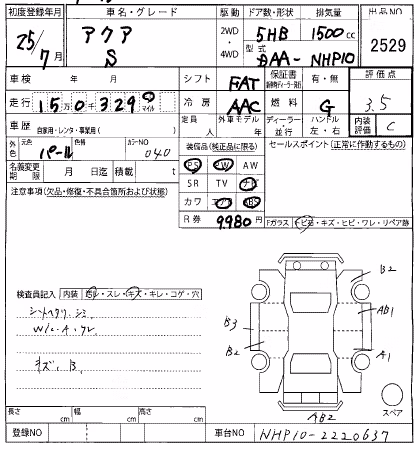 初度登録年月 車名・グレード 駆動 ドア数・形状 排気量 出品NO
25/7月 アクア S 2WD・4WD 5HB 1500cc 2529
型式 DAA-NHP10
車検 年 月 シフト FAT 保証書 有・無 評価点
走行 15万0千329 マイル 冷房 AAC 燃料 G 3.5
車歴 自家用・レンタ・事業用( ) 定員 人 外車モデル 年 ディーラー・並行 ハンドル 左・右 内装評価 C
外色 元色 パール 色替 カラーNO 040 装備品(純正品に限る) セールスポイント(正常に作動するもの)
PS PW AW
名義変更期限 月 日迄 積載 t SR TV ナビ
注意事項(欠品・修復・不具合箇所および状態) カワ エアB ABS
R券 9980円
Fガラス トビ石・キズ・ヒビ・ワレ・リペア跡
B2
検査員記入 内装 ヨゴレ・スレ・キズ・キレ・コゲ・穴
シートヘタリ、シミ AB1
W/C・A、ワレ B3
B2 A1
キズ、B
AB2 スペア
長さ cm 幅 cm 高さ cm
登録NO 車台NO NHP10-2220637